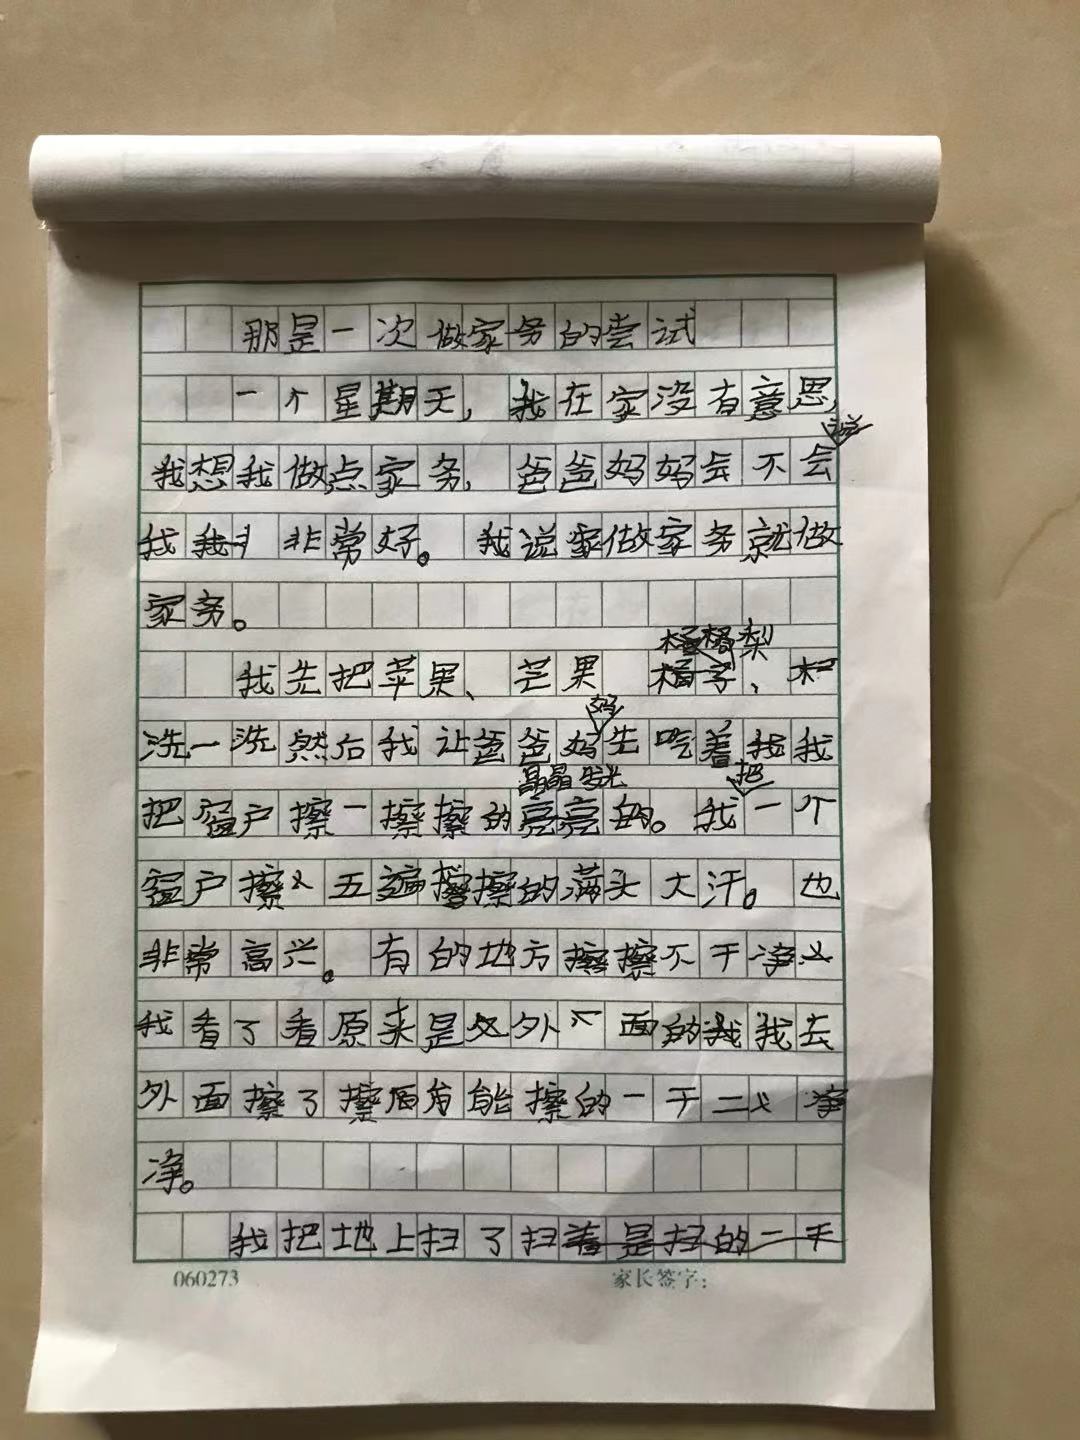 那是一次做家务的尝试
一个星期天，我在家没有意思，
说
我想我做点家务，爸爸妈妈会不会
我我 非常好。我说家做家务就做
家务。
梨
我先把苹果、芒果 橘子、
妈
洗一洗然后我让爸爸妈先吃着我我
晶晶发光 把
把窗户擦一擦擦的亮亮的。我一个
窗户擦 五遍擦擦的满头大汗。也
非常高兴。有的地方擦擦不干净
我看了看原来是 外 面的我我去
外面擦了擦 能擦的一干二 净
净。
我把地上扫了扫着是扫的一干
060273 家长签字：